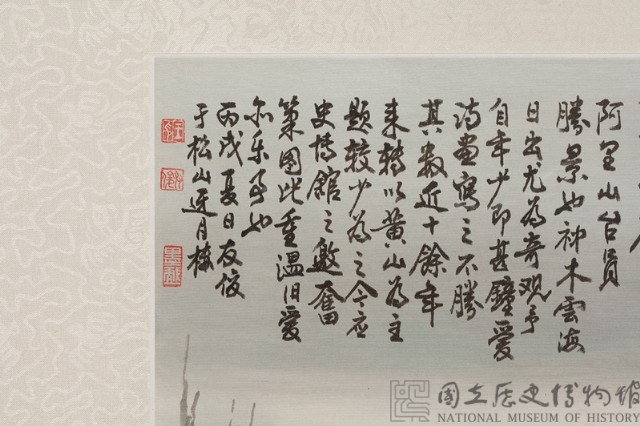 阿里山台員
勝景也神木雲海
日出尤為奇观予
自年少即甚鐘爱
詩畫寫之不勝
其数近十餘年
来轉以黄山為主
題較少為之今应
史博館之邀奮
筆圖此重温旧爱
亦乐事也
丙戌夏日友俊
于松山連月樓
國立歷史博物館
NATIONAL MUSEUM OF HISTORY